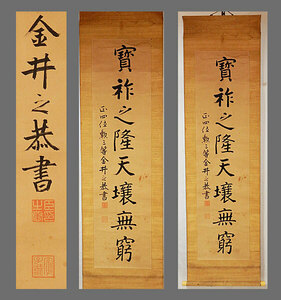 金井之恭書
寶祚之隆天壤無窮
正四位勲三等金井之恭書
寶祚之隆天壤無窮
正四位勲三等金井之恭書